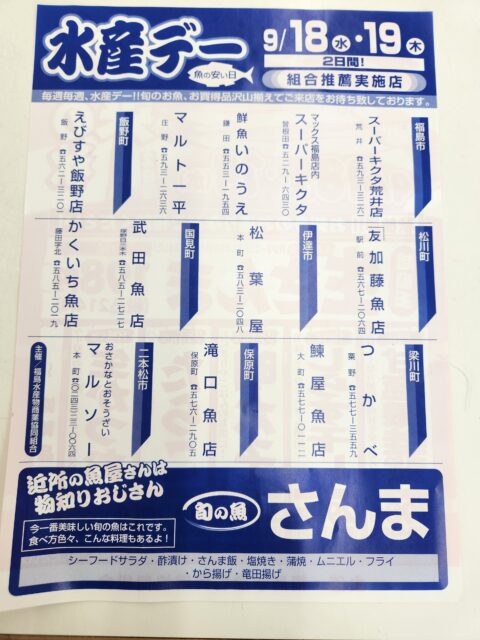 水産デー
魚の安い日
9/18水・19木
2日間!
組合推薦実施店
毎週毎週、水産デー!!旬のお魚、お買得品沢山揃えてご来店をお待ち致しております。
福島市
スーパーキクタ荒井店
荒井 ☎五九三―三三二六
マックス福島店内
スーパーキクタ
曽根田 ☎五二九―六四三〇
鮮魚いのうえ
鎌田 ☎五五三―一九五四
マルト一平
庄野 ☎五九三―一三三一
飯野町
えびすや飯野店
飯野 ☎五六二―三二〇一
松川町
友加藤魚店
駅前 ☎五六七―二〇六四
伊達市
松葉屋
本町 ☎五八三―二〇四八
国見町
武田魚店
☎五八五―二七二七
かくいち魚店
藤田字北 ☎五八五―二〇一九
梁川町
つかべ
粟野 ☎五七七―三五五九
鰊屋魚店
大町 ☎五七七―〇一一二
保原町
滝口魚店
保原町 ☎五七六―二九〇五
二本松市
おさかなとおそうざい
マルソー
本町 ☎〇二四三―二三―〇〇六四
主催/福島水産物商業協同組合
近所の魚屋さんは
物知りおじさん
今一番美味しい旬の魚はこれです。
食べ方色々、こんな料理もあるよ!
旬の魚
さんま
シーフードサラダ・酢漬け・さんま飯・塩焼き・蒲焼・ムニエル・フライ
・から揚げ・竜田揚げ